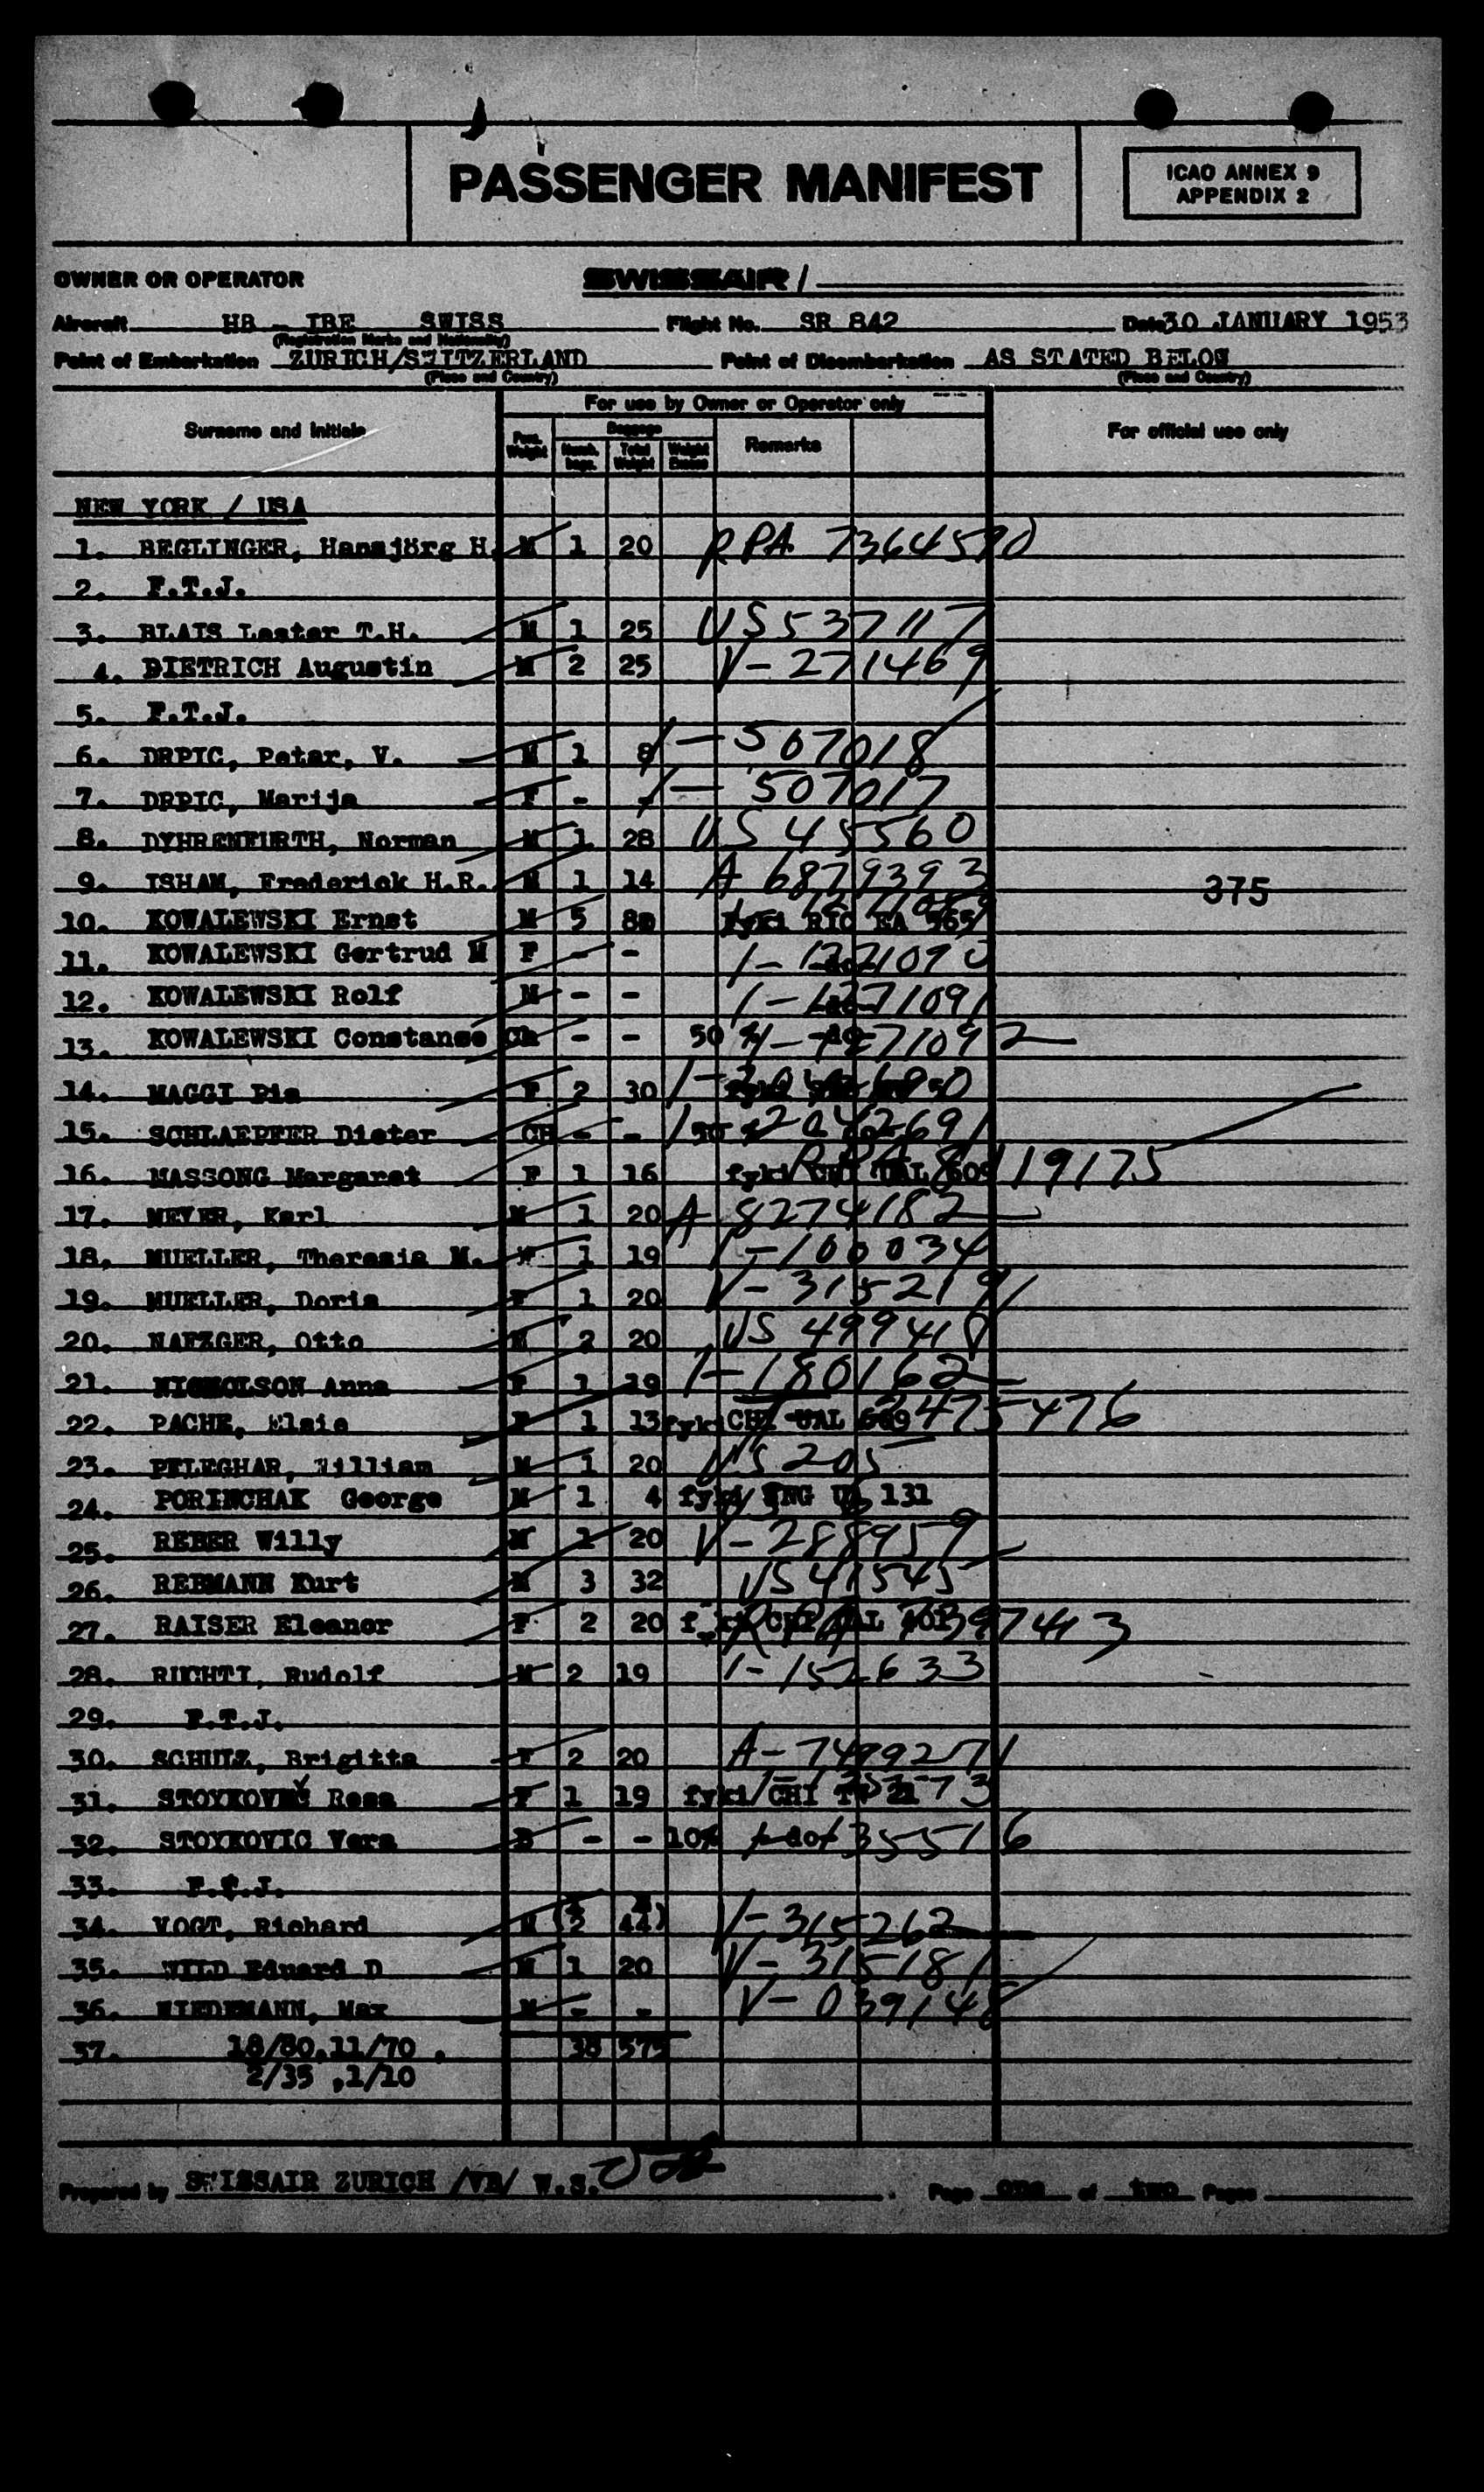 PASSENGER MANIFEST
ICAO ANNEX 9
APPENDIX 2
OWNER OR OPERATOR SWISSAIR /
Aircraft HB - IBE SWISS Flight No. SR 842 Date 30 JANUARY 1953
(Registration Marks and Nationality)
Point of Embarkation ZURICH/SWITZERLAND Point of Disembarkation AS STATED BELOW
(Place and Country) (Place and Country)
For use by Owner or Operator only
Surname and initials Baggage Remarks For official use only
Pass. Weight Numb. bags. Total Weight Weight Excess
NEW YORK / USA
1. BEGLINGER, Hansjörg H. M 1 20 RPA 7364590
2. F.T.J.
3. BLAIS Lester T.H. M 1 25 US 537117
4. DIETRICH Augustin M 2 25 V-271469
5. F.T.J.
6. DRPIC, Petar, V. M 1 8 1-507018
7. DRPIC, Marija F - - 1-507017
8. DYHRENFURTH, Norman M 1 28 US 45560
9. ISHAM, Frederick H.R. M 1 14 A 6879393
375
10. KOWALEWSKI Ernst M 5 80 fyki RIC EA 565
11. KOWALEWSKI Gertrud M F - - 1-1271090
12. KOWALEWSKI Rolf M - - 1-1271091
13. KOWALEWSKI Constanse Ch - - 50 % -do- 1-1271092
14. MAGGI Pia F 2 30
15. SCHLAEPFER Dieter CH - - 50 % 1-2042691
16. MASSONG Margaret F 1 16 fyki CHI UAL 609 119175
17. MEYER, Karl M 1 20 A 8274182
18. MUELLER, Theresia M. F 1 19 1-100034
19. MUELLER, Doris F 1 20 V-315219
20. NAFZGER, Otto M 2 20 US 499418
21. NICHOLSON Anna F 1 19 1-180162
22. PACHE, Elsie F 1 13 fyki CHI UAL 609 2475476
23. PELEGHAR, William M 1 20 US 205
24. PORINCHAK George M 1 4 fyki 131
25. REBER Willy M 1 20 V-288959
26. REBMANN Kurt M 3 32 US 41545
27. RAISER Eleanor F 2 20 fyki CHI UAL RPA 7397443
28. RUCHTI, Rudolf M 2 19 1-152633
29. F.T.J.
30. SCHULZ, Brigitta F 2 20 A-7499271
31. STOYKOVIC Rosa F 1 19 fyki CHI TW 21
32. STOYKOVIC Vera - - 10% -do- 355516
33. F.T.J.
34. VOGT, Richard M (2 44) V-315262
35. WILD Eduard D M 1 20 V-315181
36. WIEDEMANN, Max M - - V-039148
37. 18/80,11/70 . 38 575
2/35 ,1/10
Prepared by SWISSAIR ZURICH /VB/ W.S. Page one of two Pages